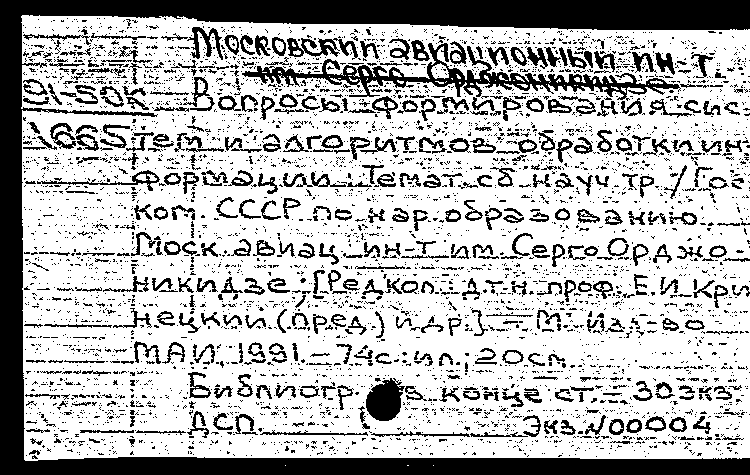 Московский авиационный ин-т.
им. Серго Орджоникидзе
91-50К Вопросы формирования сис-
1665 тем и алгоритмов обработки ин-
формации : Темат. сб. науч. тр. / Гос.
ком. СССР по нар. образованию.
Моск. авиац. ин-т им. Серго Орджо-
никидзе ; [Редкол.: д.т.н. проф. Е.И. Кри-
нецкий (пред.) и др.] – М. Изд-во
МАИ, 1991. – 74с.: ил.; 20см.
Библиогр. в конце ст. – 30 экз.
ДСП. Экз. №00004